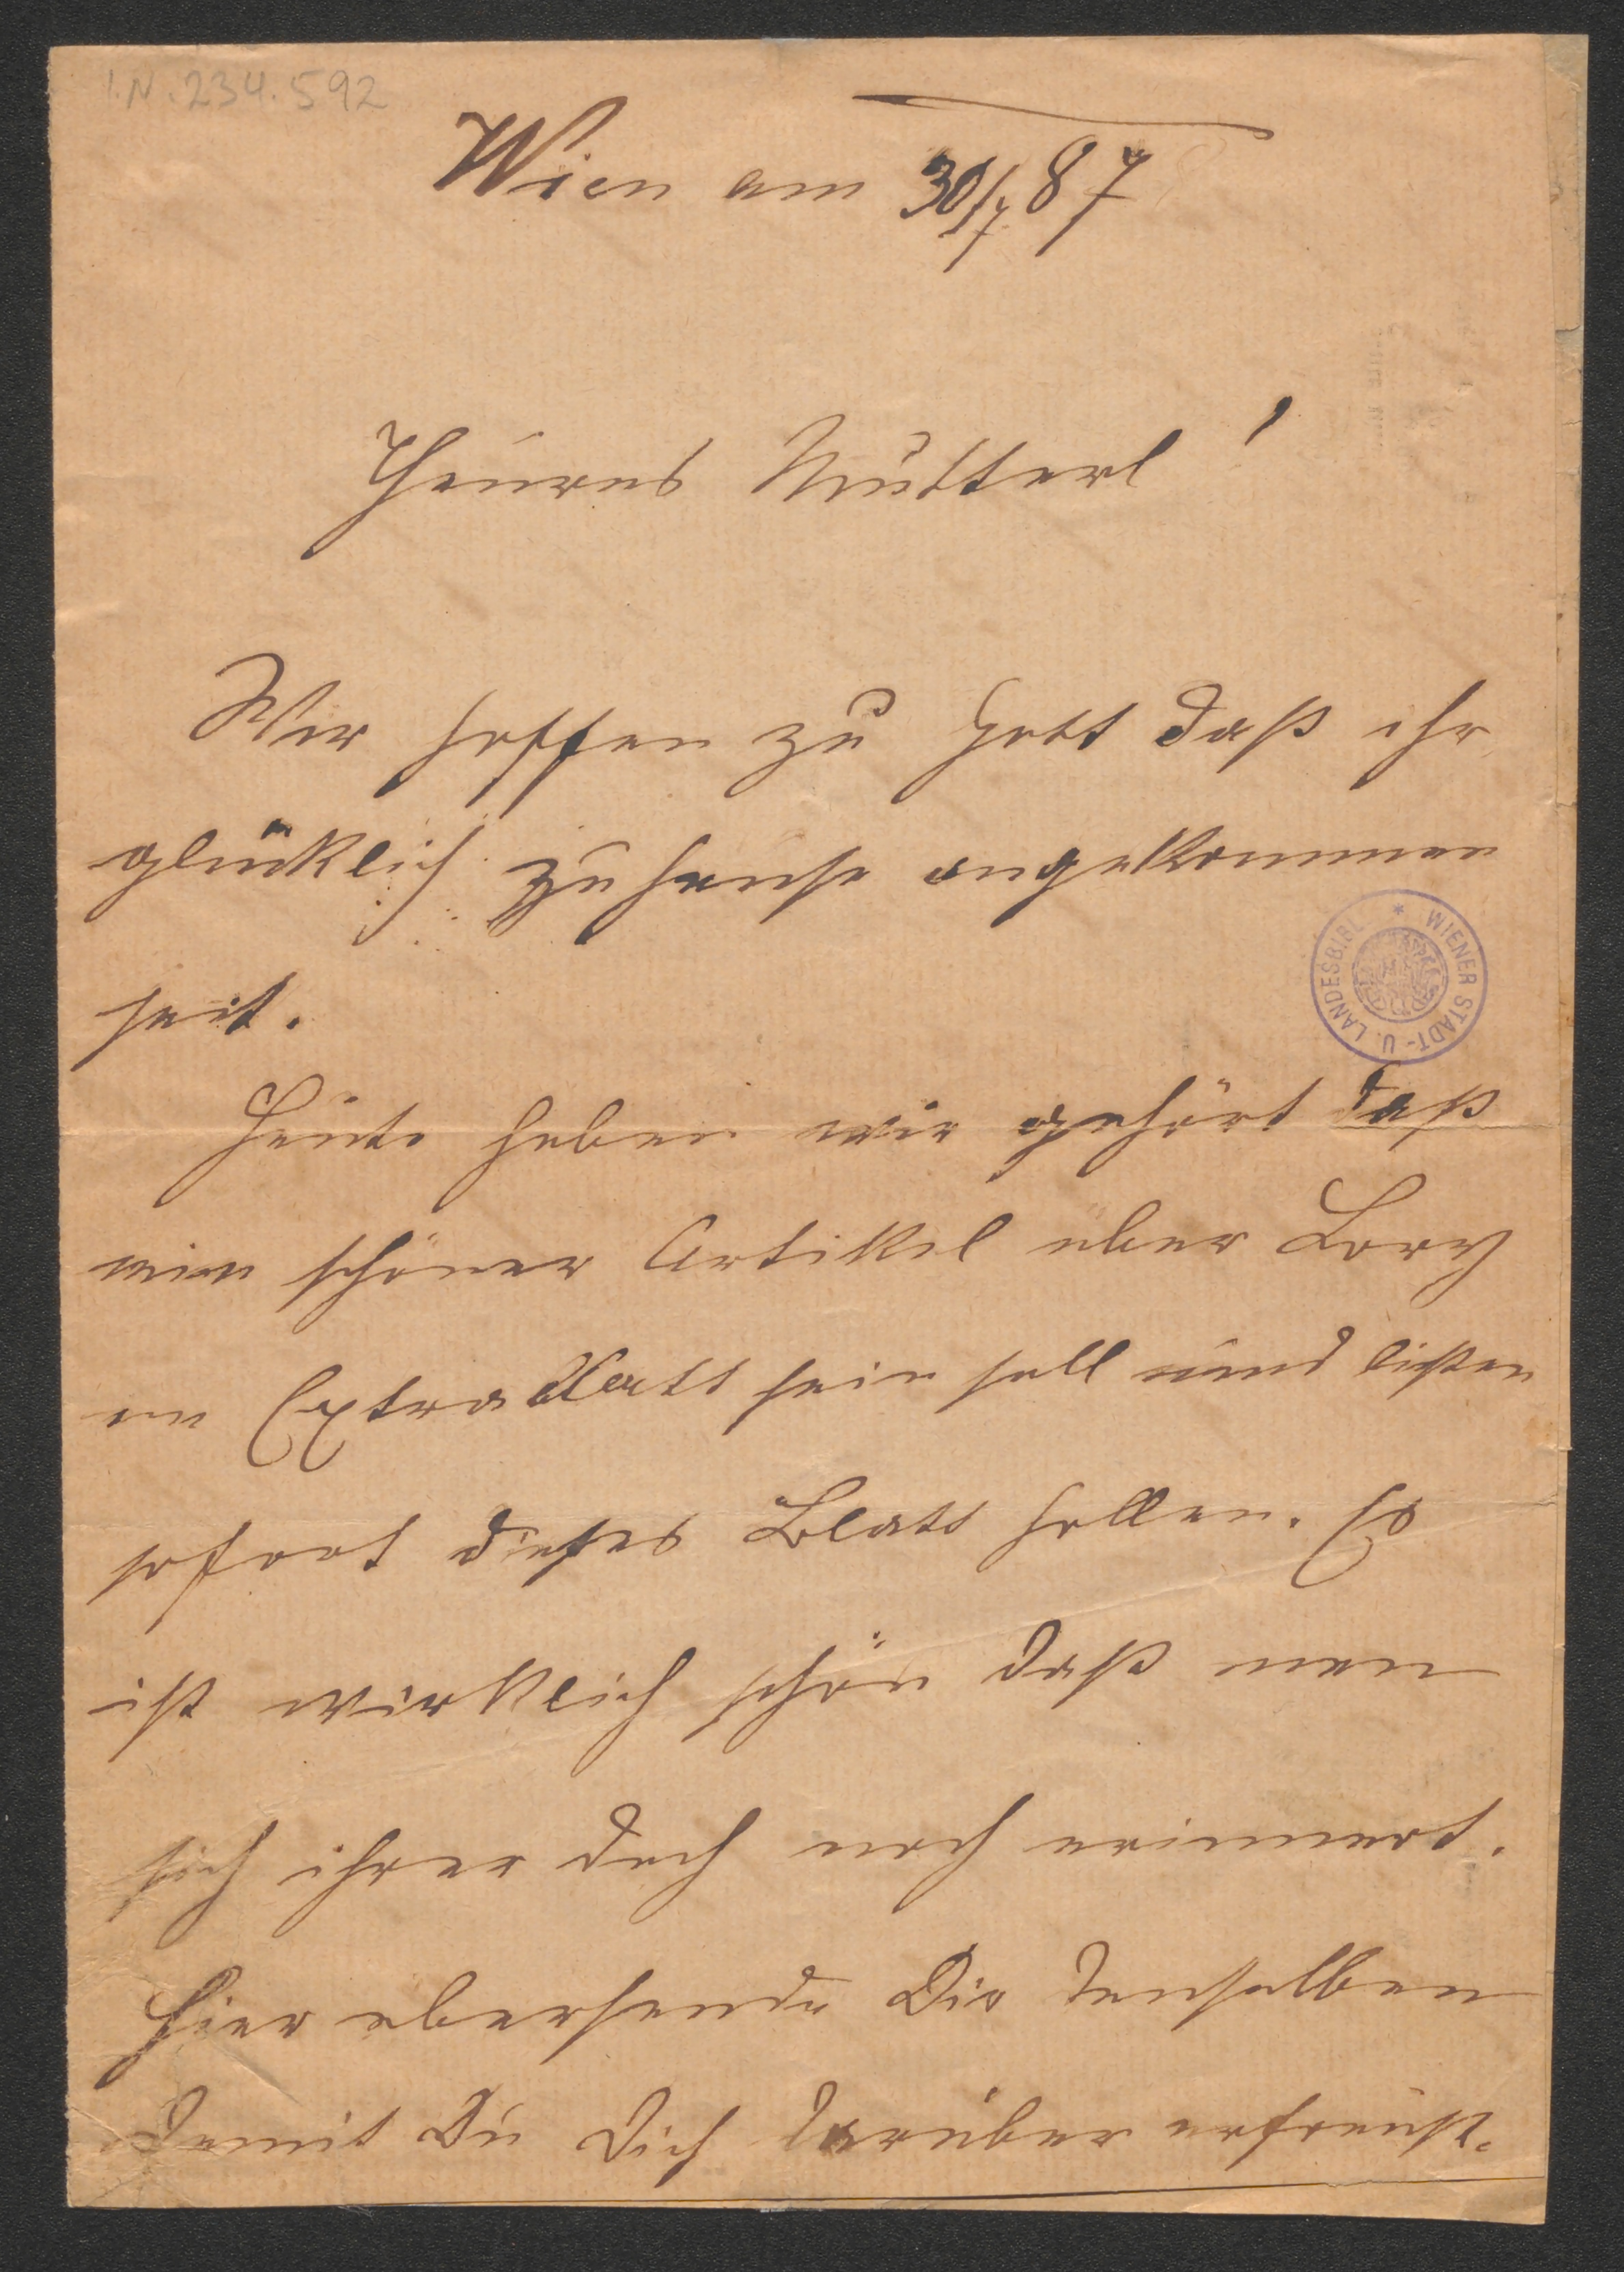 I.N. 234.592
Wien am 30/7 87
Theures Mutterl!
Wir hoffen zu Gott daß ihr
glücklich zuhause angekommen
seit.
Heute haben wir gehört daß
ein schöner Artikel über Lory
im Extrablatt sein soll und ließen
sofort dieses Blatt hollen. Es
ist wirklich schön daß man
sich ihrer doch noch erinnert.
Hier übersende Dir denselben
damit Du Dich darüber erfreust.
WIENER STADT- U. LANDESBIBL. *